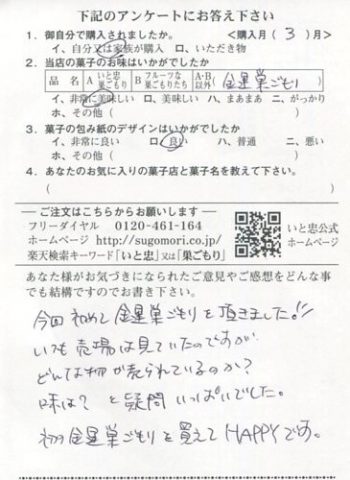 下記のアンケートにお答え下さい
1．御自分で購入されましたか。 <購入月( 3 )月>
イ、自分又は家族が購入 ロ、いただき物
2．当店の菓子のお味はいかがでしたか
品 名 A いと忠巣ごもり B フルーツな巣ごもりたち A・B以外( 金星巣ごもり )
イ、非常に美味しい ロ、美味しい ハ、まあまあ ニ、がっかり
ホ、その他（ ）
3．菓子の包み紙のデザインはいかがでしたか
イ、非常に良い ロ、良い ハ、普通 ニ、悪い
ホ、その他（ ）
4．あなたのお気に入りの菓子店と菓子名を教えて下さい。
（ ）
ご注文はこちらからお願いします
フリーダイヤル 0120-461-164
ホームページ http://sugomori.co.jp/
楽天検索キーワード「いと忠」又は「巣ごもり」
いと忠公式
ホームページ
あなた様がお気づきになられたご意見やご感想をどんな事
でも結構ですのでお書き下さい。
今回初めて金星巣ごもりを頂きました!!
いつも売場は見ていたのですが
どんな物が売られているのか?
味は? と疑問いっぱいでした。
初金星巣ごもりを買えてHAPPYです。